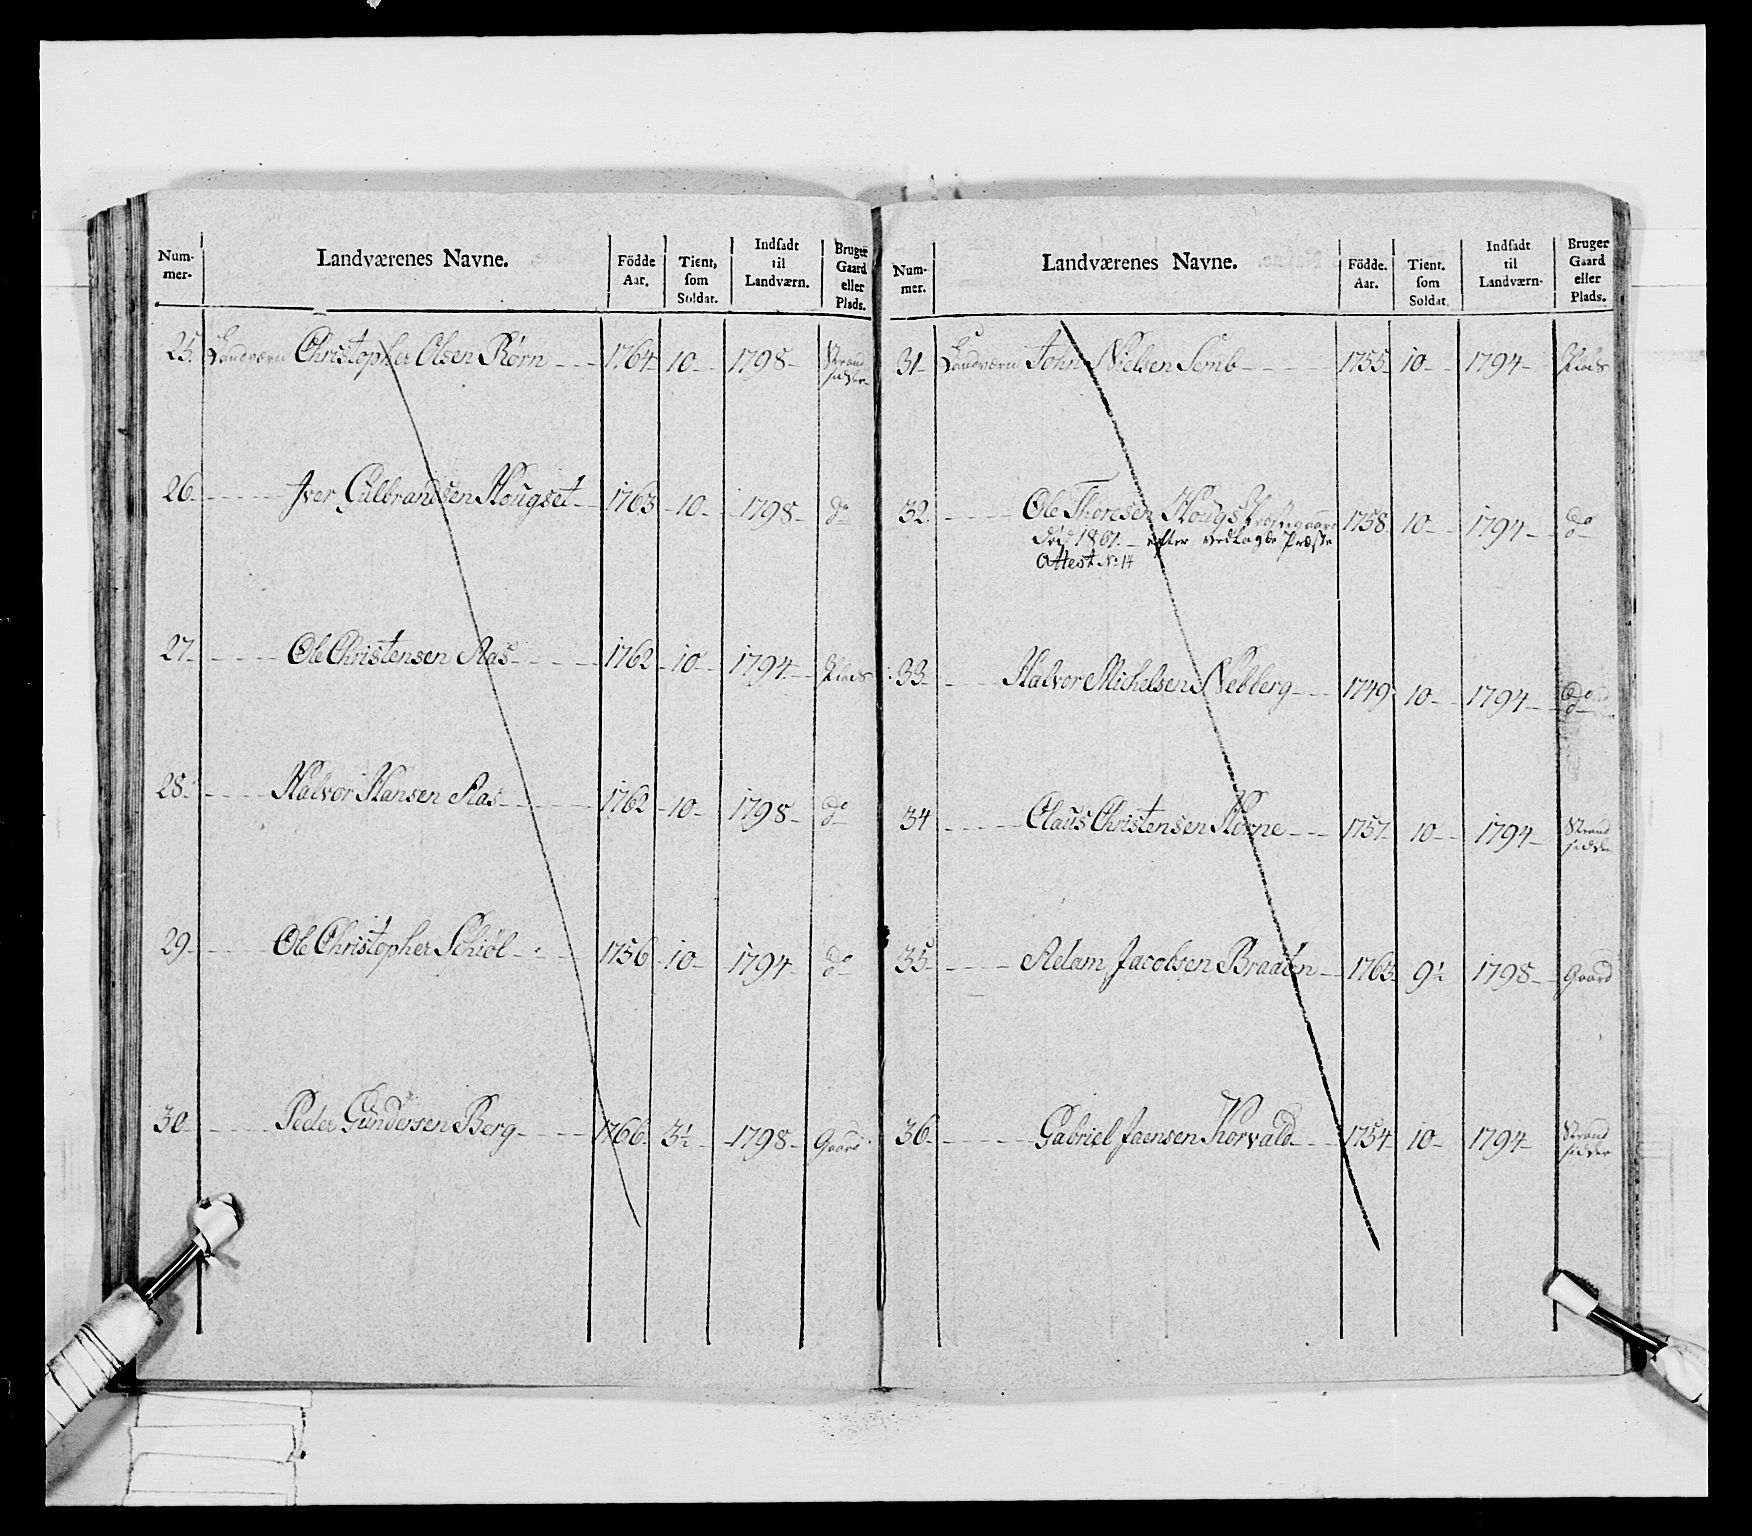 Num-
mer.
Landværenes Navne.
Födde
Aar.
Tient,
som
Soldat.
Indsadt
til
Landværn.
Bruger
Gaard
eller
Plads.
25. Landværn Christopher Olsen Rørn 1764 10 1798 Strand
sidder
26. Iver Gulbrandsen Hougset 1763 10 1798 do
27. Ole Christensen Aas 1762 10 1794 Plads
28. Halvor Hansen Aas 1762 10 1798 do
29. Ole Christopher Schiøl 1756 10 1794 do
30 Peder Gundersen Berg 1766 3½ 1798 Gaard
Num-
mer.
Landværenes Navne.
Födde.
Aar.
Tient.
som
Soldat
Indsadt
til
Landværn.
Bruger
Gaard
eller
Plads.
31 Landværn John Nielsen Semb 1755 10 1794 Plads
32. Ole Thoresen Hougs 1758 10 1794 do
Død 1801. efter vedlagde Præste
Attest No 14
33 Halvor Michelsen Nebberg 1749 10 1794 do
34 Claus Christensen Horne 1757 10 1794 Strand
sidder
35 Adam Jacobsen Braaten 1763 9½ 1798 Gaard
36 Gabriel Jaensen Korvald 1754 10 1794 Strand
sidder